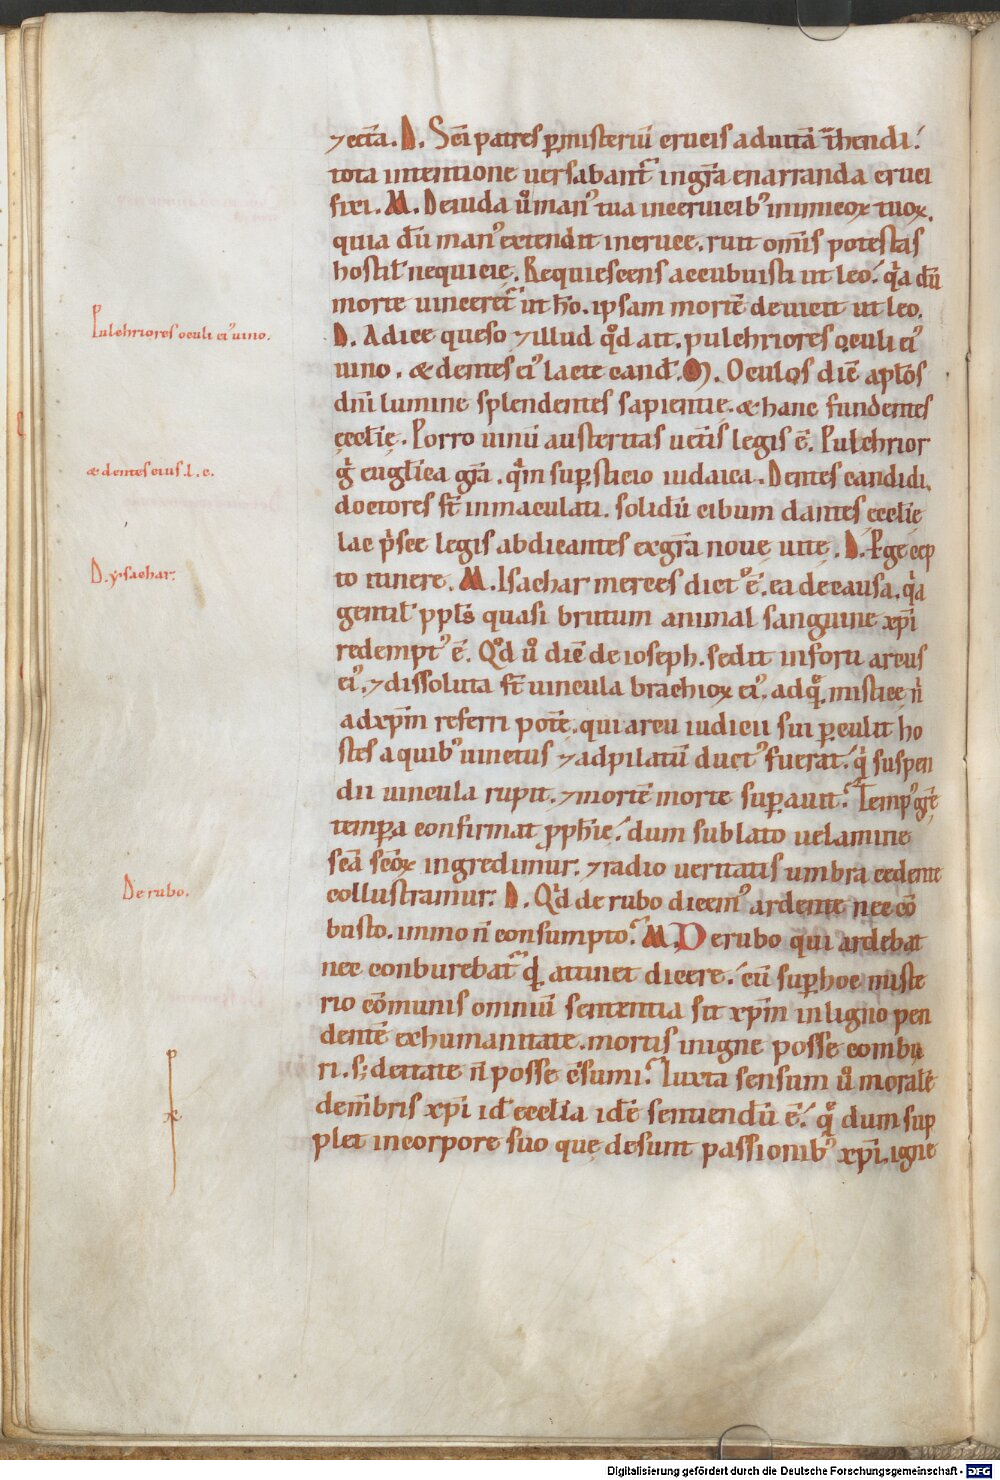 ⁊ cet̄a. D. Sc̄i patres ꝑ misteriū crucis ad uitā t̄hendi.
tota intentione uersabant᷑ in gr̄a enarranda cruci
fixi. M. De iuda u̇ man᷒ tua in ceruicib᷒ inimicoꝝ tuoꝝ.
quia dū man᷒ extendit in cruce. ruit om̄is potestas
hostil᷒ nequicie. Requiescens accubuisti ut leo. q̇a dū
morte uinceret᷑ ut hō. ipsam mortē deuicit ut leo.
D. Adice queso ⁊ illud qd̓ ait. pulchriores oculi ei᷒
uino. & dentes ei᷒ lacte cand̄. M. Oculos dic̄ apl̄os
dn̄i lumine splendentes sapientię. & hanc fundentes
ęccl̄ię. Porro uinū austeritas uet̄is legis ē. Pulchrior
g̊ eug̅lica gr̄a. q̄m sup̱sticio iudaica. Dentes candidi.
doctores st̄ immaculati. solidū cibum dantes eccl̄ie
lac p̓sce legis abdicantes ex gr̄a nouę uitę. D. P̱ge cęp
to itinere. M. Isachar merces dict᷒ ē. ea de causa. q̇a
gentil᷒ ppl̄s quasi brutum animal sanguine xp̄i
redempt᷒ ē. Qd̓ u̇ dic̄ de ioseph. sedit in forti arcus
ei᷒. ⁊ dissoluta st̄ uincula brachioꝝ ei᷒. ad q̊. mistice n̄
ad xp̄m referri potē. qui arcu iudicii sui ꝑculit ho
stes a quib᷒ uinctus ⁊ ad pilatū duct᷒ fuerat. q̇ suspen
dii uincula rupit. ⁊ mortē morte suꝑauit. Temp᷒ grē
tempa confirmat ꝓph̄ię. dum sublato uelamine
sc̄a sc̄oꝝ ingredimur. ⁊ radio ueritatis umbra cedente
collustramur. D. Qd̓ de rubo dicem᷒ ardente nec cō
busto. immo n̄ consumpto. M. De rubo qui ardebat
nec conburebat᷑ qd̓ attinet dicere. cū suꝑ hoc miste
rio cōmunis omniū sententia sit xp̄m in ligno pen
dentē ex humanitate. mortis in igne posse combu
ri. s; deitate n̄ posse c̄sumi. Iuxta sensum u̇ moralē
de mēbris xp̄i id̓ eccl̄ia idē sentiendū ē. q̊ dum sup
plet in corpore suo quę desunt passionib᷒ xp̄i. igne
Pulchriores oculi ei᷒ uino.
& dentes eius .l. c.
D. ysachar.
De rubo.
Digitalisierung gefördert durch die Deutsche Forschungsgemeinschaft - DFG